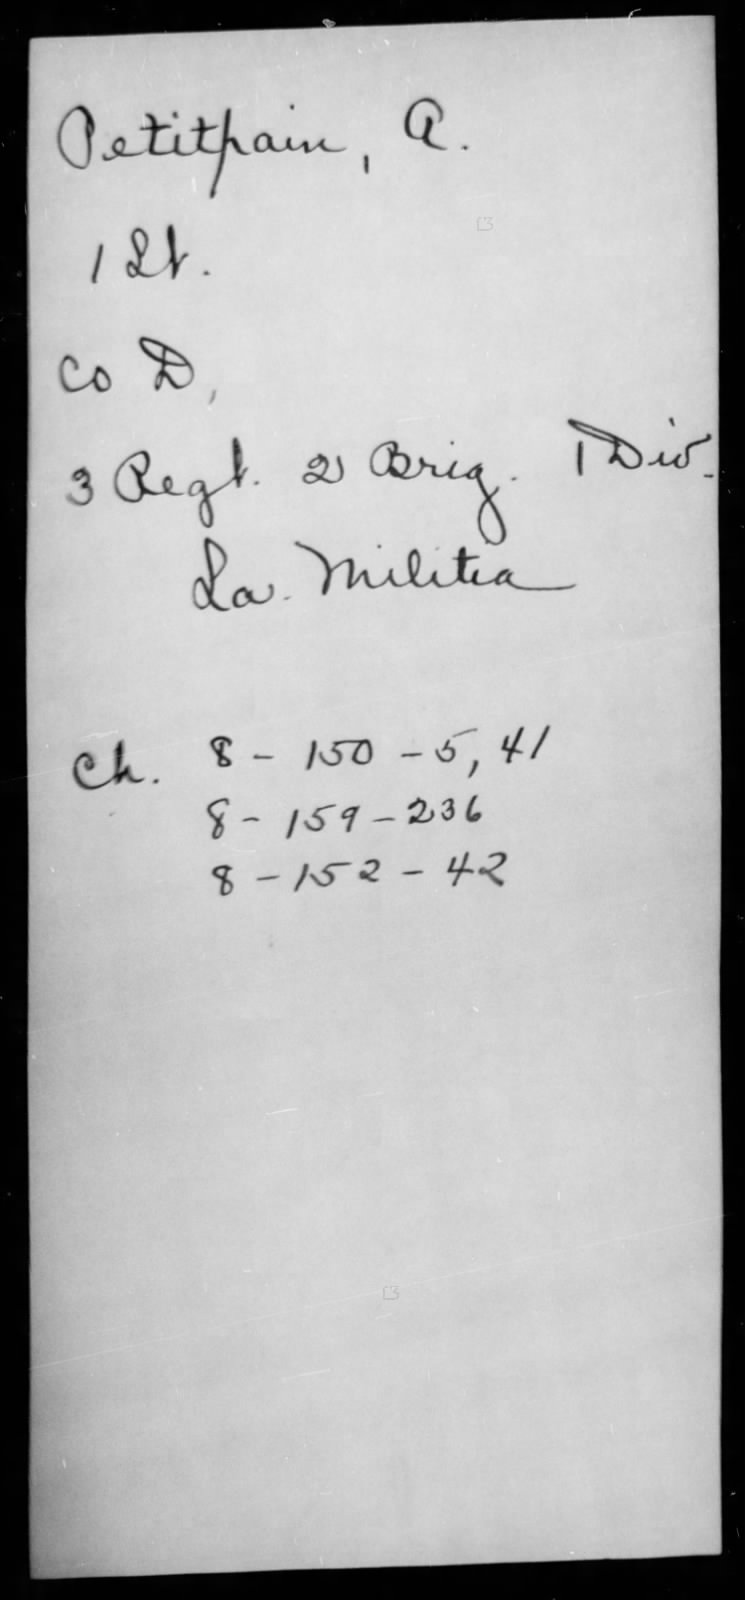 Petitpain, A.
1 Lt.
Co D,
3 Regt. 2 Brig. 1 Div.
La. Militia
Ch. 8 - 150 - 5, 41
8 - 159 - 236
8 - 152 - 42